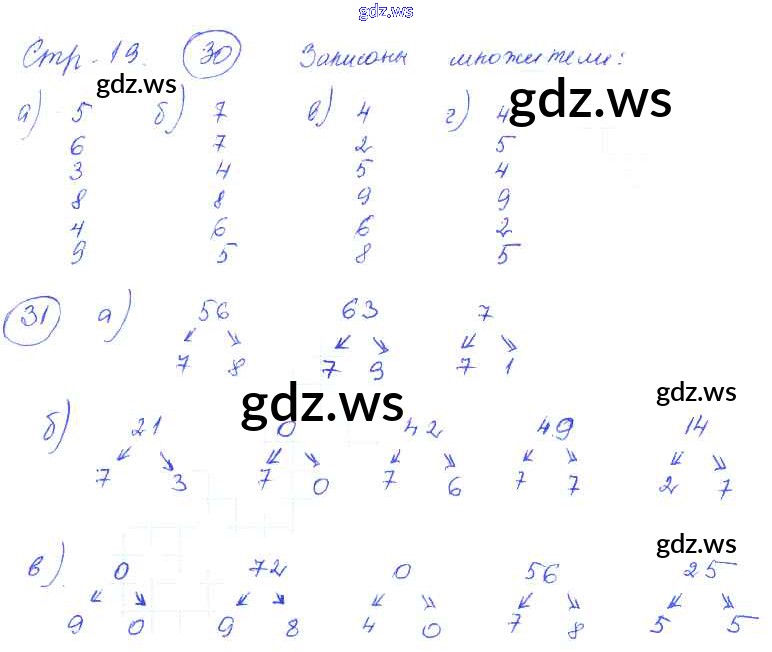 gdz.ws
Стр. 19. 30 Записаны множители:
gdz.ws
gdz.ws
а) 5 б) 7 в) 4 г) 4
6 7 2 5
3 4 5 4
8 8 9 9
4 6 6 2
9 5 8 5
31 а) 56 63 7
7 8 7 9 7 1
gdz.ws
gdz.ws
б) 21 0 42 49 14
7 3 7 0 7 6 7 7 2 7
gdz.ws
в) 0 72 0 56 25
9 0 9 8 4 0 7 8 5 5